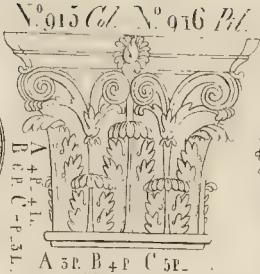 Nº 915 Col. Nº 916 Pil.
A 4P. 4L.
B 6P. C - P - 3L.
A 3P. B 4 P C 5P-